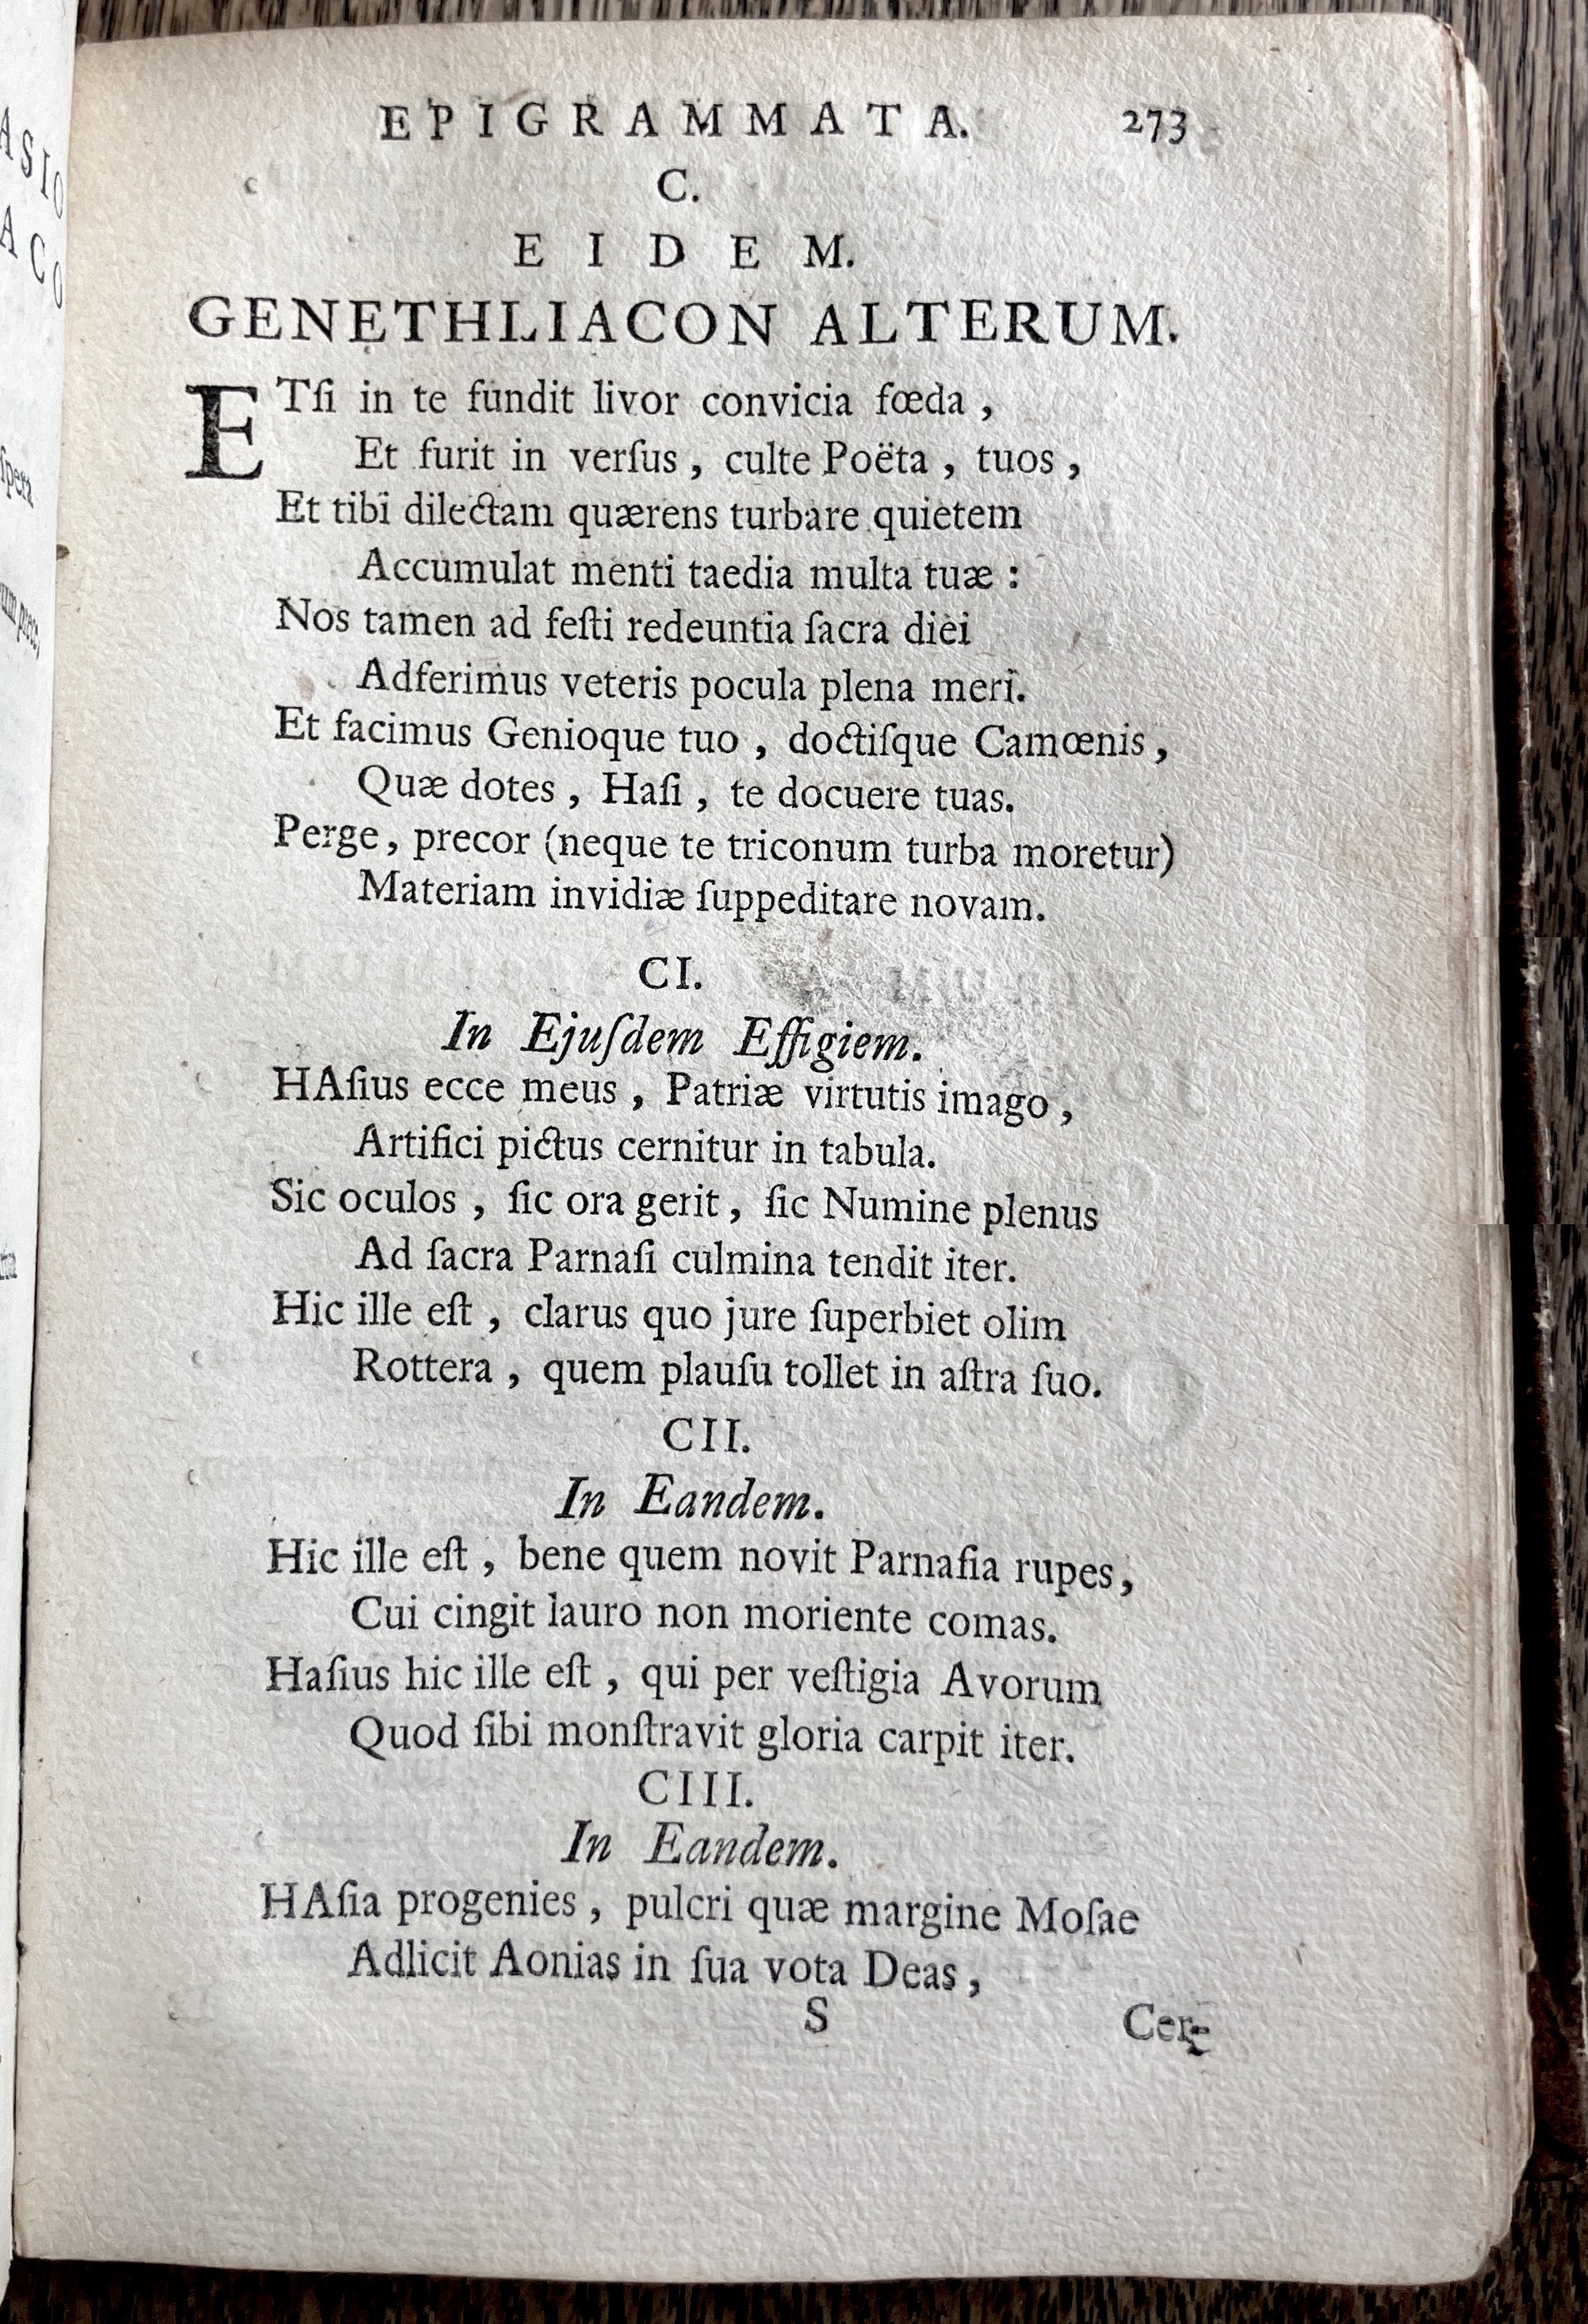 EPIGRAMMATA. 273
C.
EIDEM.
GENETHLIACON ALTERUM.
ETſi in te fundit livor convicia fœda,
Et furit in verſus, culte Poëta, tuos,
Et tibi dilectam quærens turbare quietem
Accumulat menti taedia multa tuæ:
Nos tamen ad feſti redeuntia ſacra diei
Adferimus veteris pocula plena meri.
Et facimus Genioque tuo, doctiſque Camœnis,
Quæ dotes, Haſi, te docuere tuas.
Perge, precor (neque te triconum turba moretur)
Materiam invidiæ ſuppeditare novam.
CI.
In Ejuſdem Effigiem.
HAſius ecce meus, Patriæ virtutis imago,
Artifici pictus cernitur in tabula.
Sic oculos, ſic ora gerit, ſic Numine plenus
Ad ſacra Parnaſi culmina tendit iter.
Hic ille eſt, clarus quo jure ſuperbiet olim
Rottera, quem plauſu tollet in aſtra ſuo.
CII.
In Eandem.
Hic ille eſt, bene quem novit Parnaſia rupes,
Cui cingit lauro non moriente comas.
Haſius hic ille eſt, qui per veſtigia Avorum
Quod ſibi monſtravit gloria carpit iter.
CIII.
In Eandem.
HAſia progenies, pulcri quæ margine Moſae
Adlicit Aonias in ſua vota Deas,
S Cer-